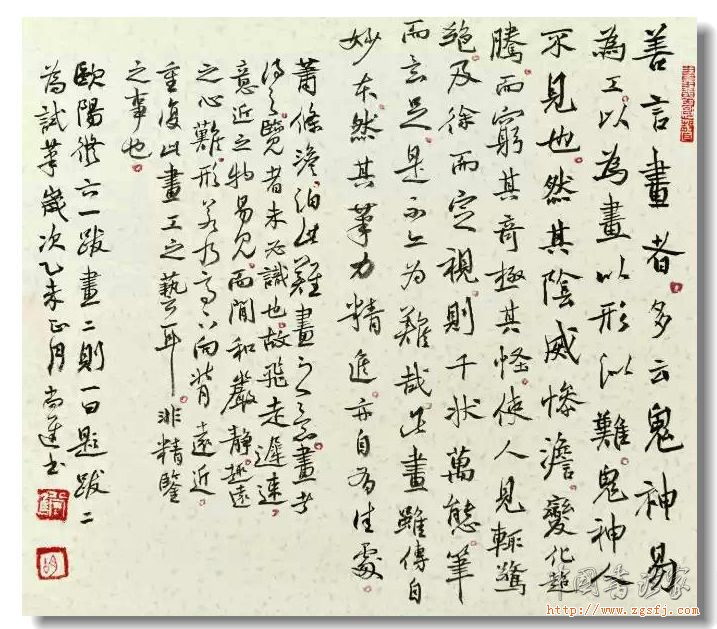 善言畫者多云鬼神易
為工以為畫以形似難鬼神人
不見也然其陰威慘澹變化超
騰而窮其奇極其怪使人見輒驚
絕及徐而定視則千狀萬態筆
而言足是不亦為難哉此畫雖傳自
妙本然其筆力精進亦自有佳處
蕭條澹泊此難畫之意畫者
得之覽者未必識也故飛走遲速
意近之物易見而閒和嚴靜趣遠
之心難形若乃高下向背遠近
重復此畫工之藝耳非精鑒
之事也
歐陽修六一跋畫二則一曰題跋二
為試筆歲次乙未正月尚進書
http://www.zgsfj.com